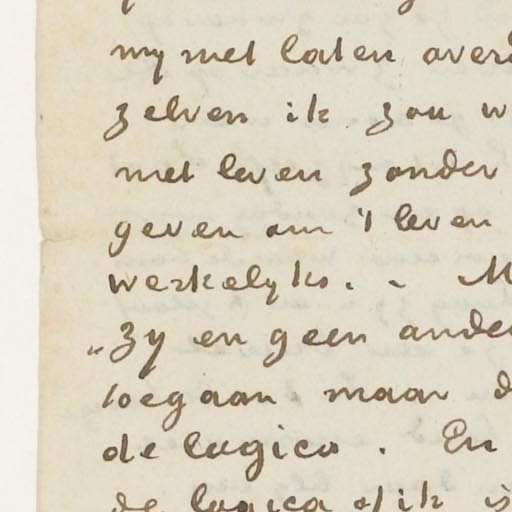 my met laten over
zelven ik zou w
met leven zonder
geven om 't leven
werkelyks. - M
„Zy en geen ander
toegaan maar d
de logica. En
de logica of ik is